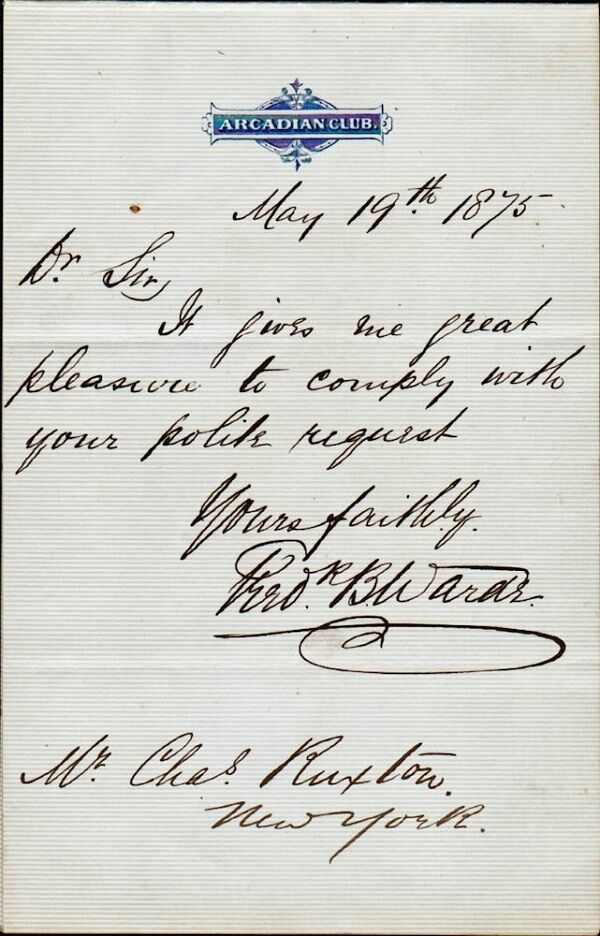 ARCADIAN CLUB.
May 19th 1875
Dr Sir,
It gives me great
pleasure to comply with
your polite request
Yours faithfully.
Fredk. B. Warde.
Mr Chas Ruxton.
New York.